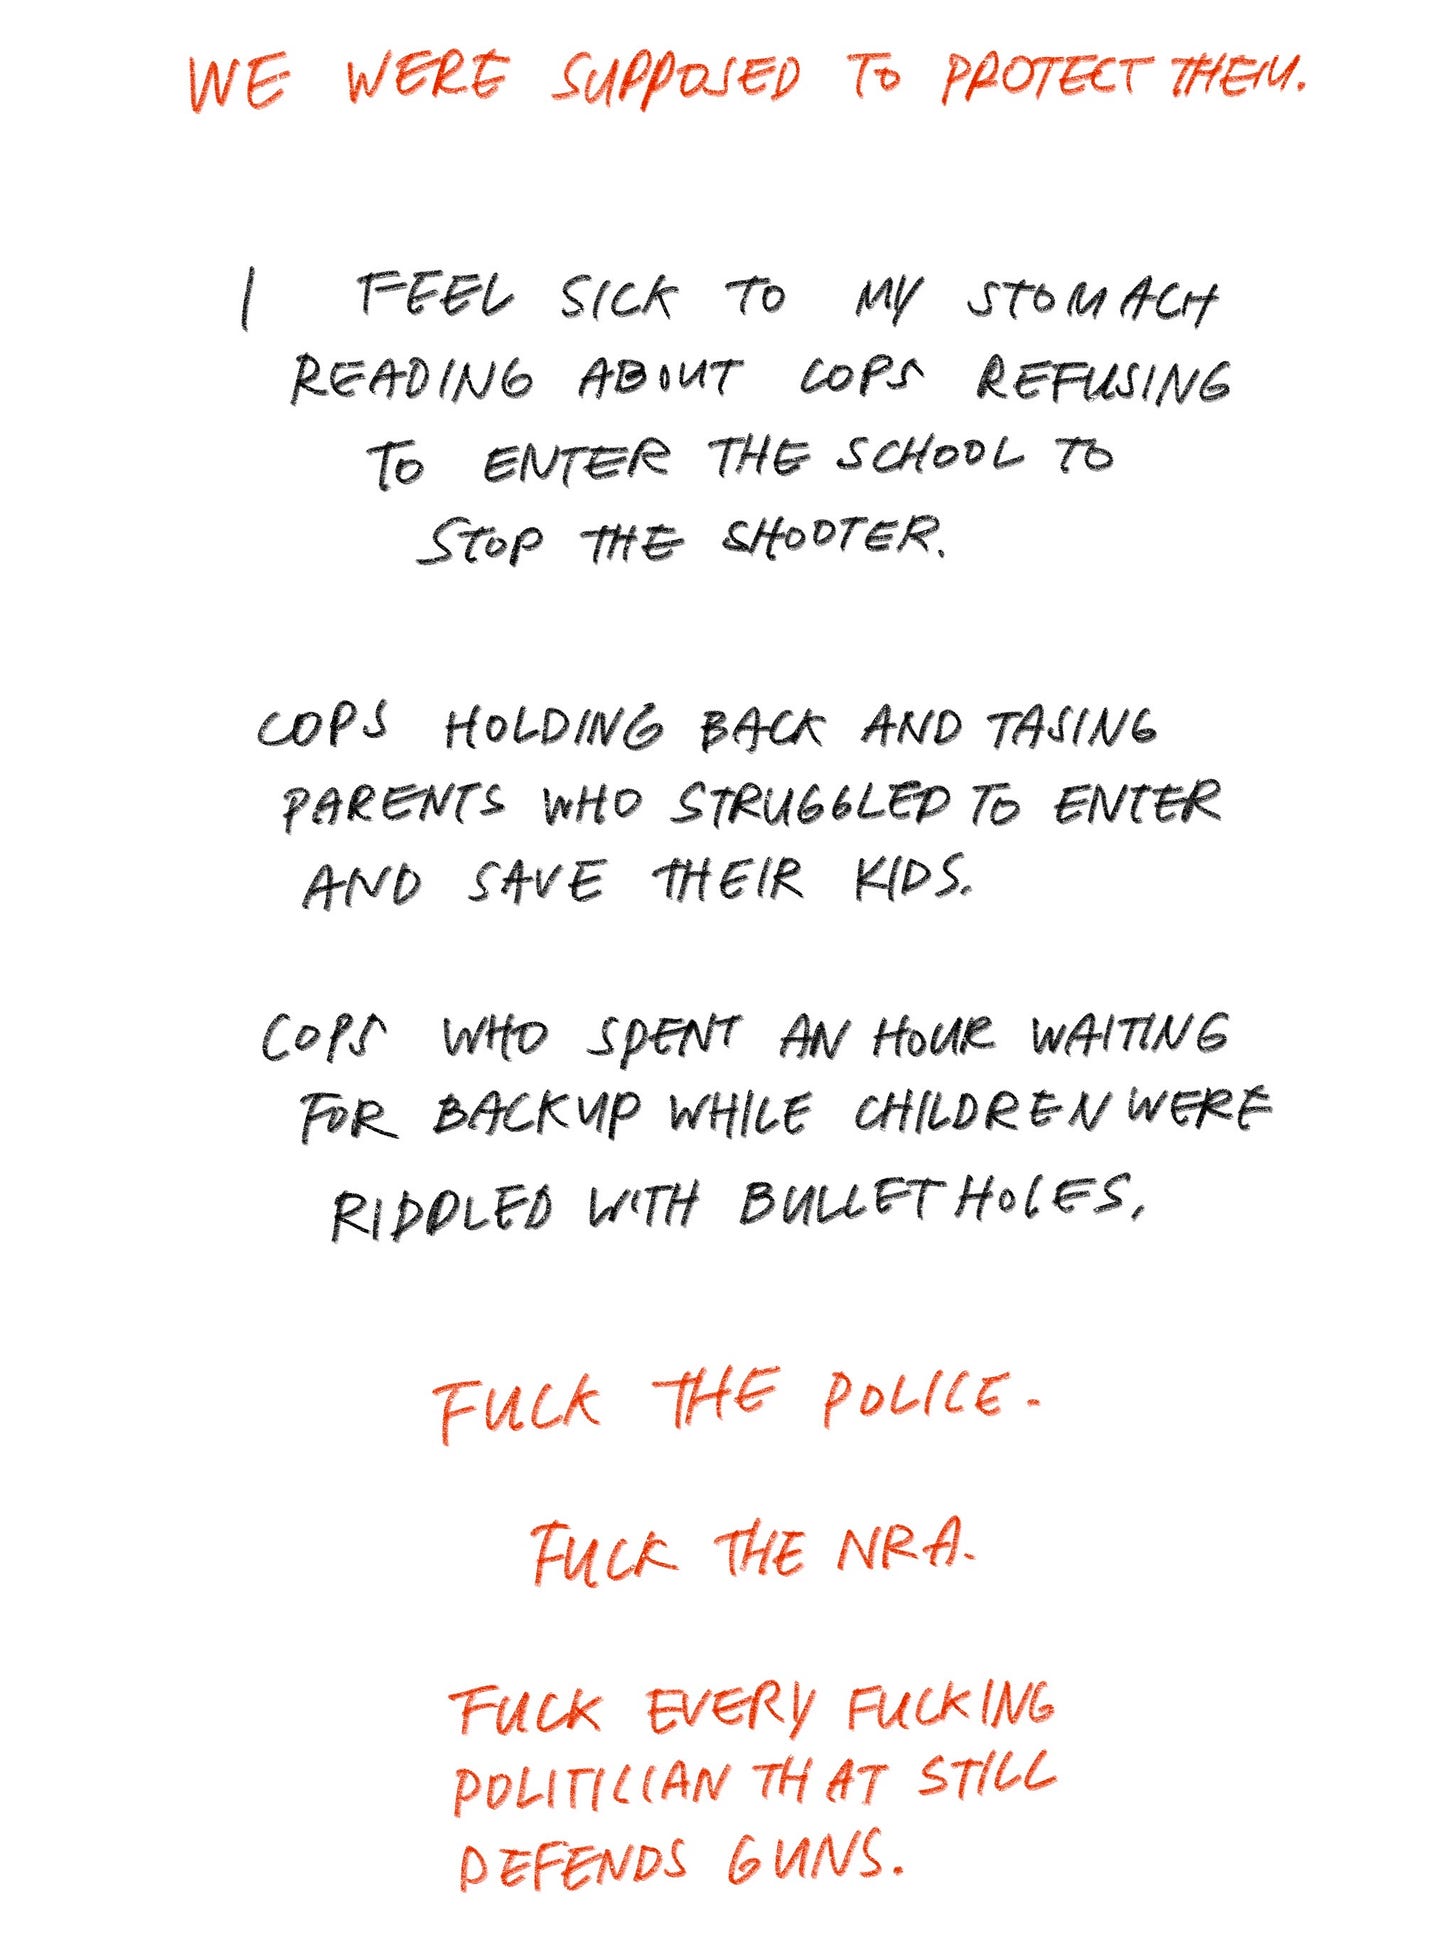 WE WERE SUPPOSED TO PROTECT THEM.
I FEEL SICK TO MY STOMACH
READING ABOUT COPS REFUSING
TO ENTER THE SCHOOL TO
STOP THE SHOOTER.
COPS HOLDING BACK AND TASING
PARENTS WHO STRUGGLED TO ENTER
AND SAVE THEIR KIDS.
COPS WHO SPENT AN HOUR WAITING
FOR BACKUP WHILE CHILDREN WERE
RIDDLED WITH BULLET HOLES.
FUCK THE POLICE.
FUCK THE NRA.
FUCK EVERY FUCKING
POLITICIAN THAT STILL
DEFENDS GUNS.